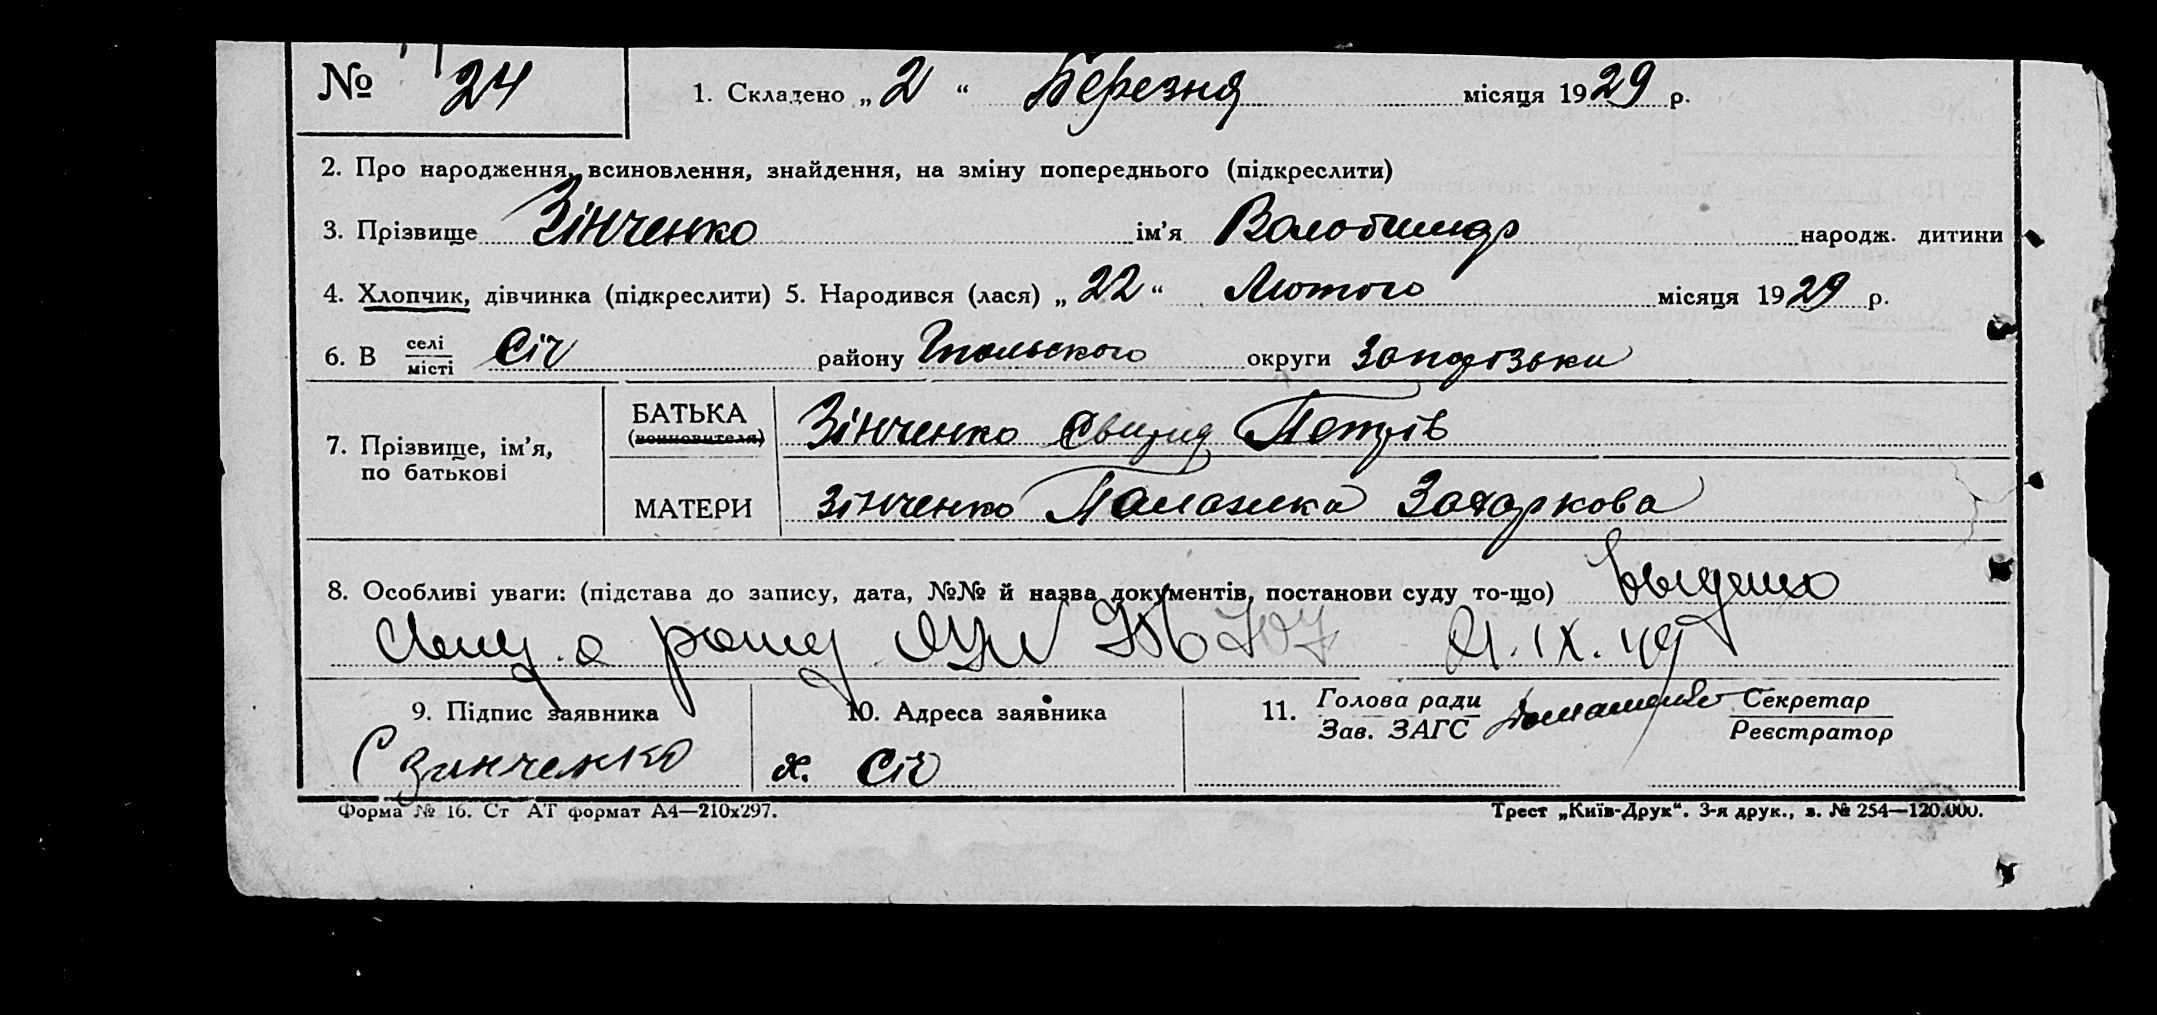 № 24 1. Складено „ 2 “ Березня місяця 1929 р.
2. Про народження, всиновлення, знайдення, на зміну попереднього (підкреслити)
3. Прізвище Зінченко ім’я Володимир народж. дитини
4. Хлопчик, дівчинка (підкреслити) 5. Народився (лася) „ 22 “ Лютого місяця 1929 р.
6. В селі місті Січ району округи Запорізьки
7. Прізвище, ім’я, по батькові
БАТЬКА (всиновителя) Зінченко Свирид Петрів
МАТЕРИ Зінченко Палажка Захаркова
8. Особливі уваги: (підстава до запису, дата, №№ й назва документів, постанови суду то-що)
707 21.IX.49
9. Підпис заявника 10. Адреса заявника 11. Голова ради Зав. ЗАГС Секретар Реєстратор
С Зинченко х. Січ
Форма № 16. Ст АТ формат А4—210х297. Трест „Київ-Друк“. 3-я друк., з. № 254—120.000.